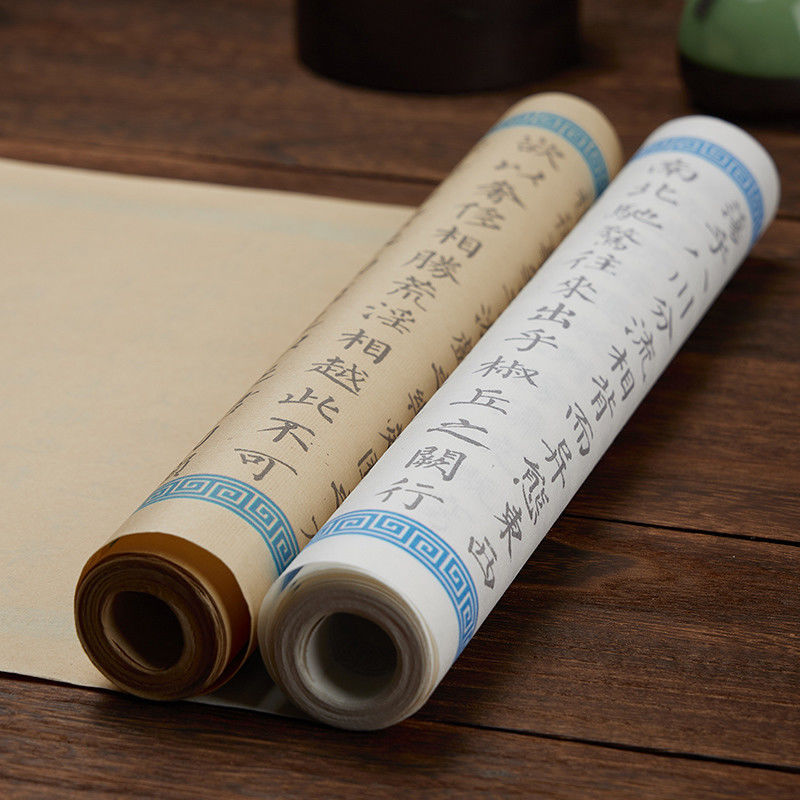 蕩乎八川分流相背而异態東西
南北馳騖往來出乎椒丘之闕行
欲以奢侈相勝荒淫相越此不可